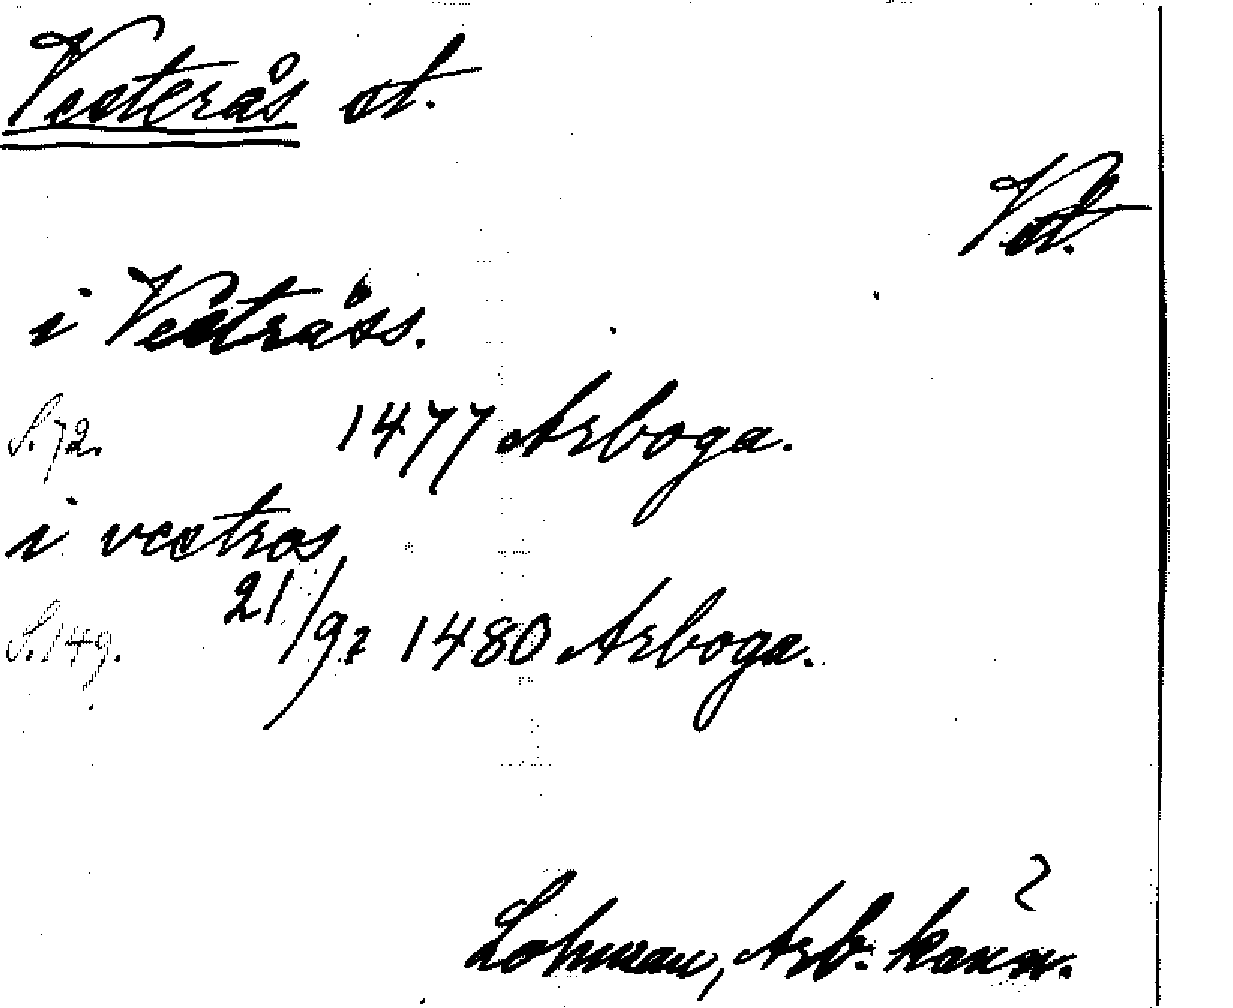 Vesterås st.
Vst.
i Vesträss.
S. 72. 1477 Arboga.
i vestros
S. 149. 21/9? 1480 Arboga.
2
Lohman, Arb.